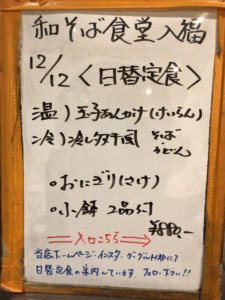 和そば食堂 入福
12/12 〈日替定食〉
温）玉子あんかけ（けいらん）
冷）冷し タヌキ風 そば・うどん
。おにぎり（さけ）
。小鉢 2品付
¥880.-
入口こちら
当店ホームページ・インスタ・グーグル
日替定食の案内しています フォロー下さい!!